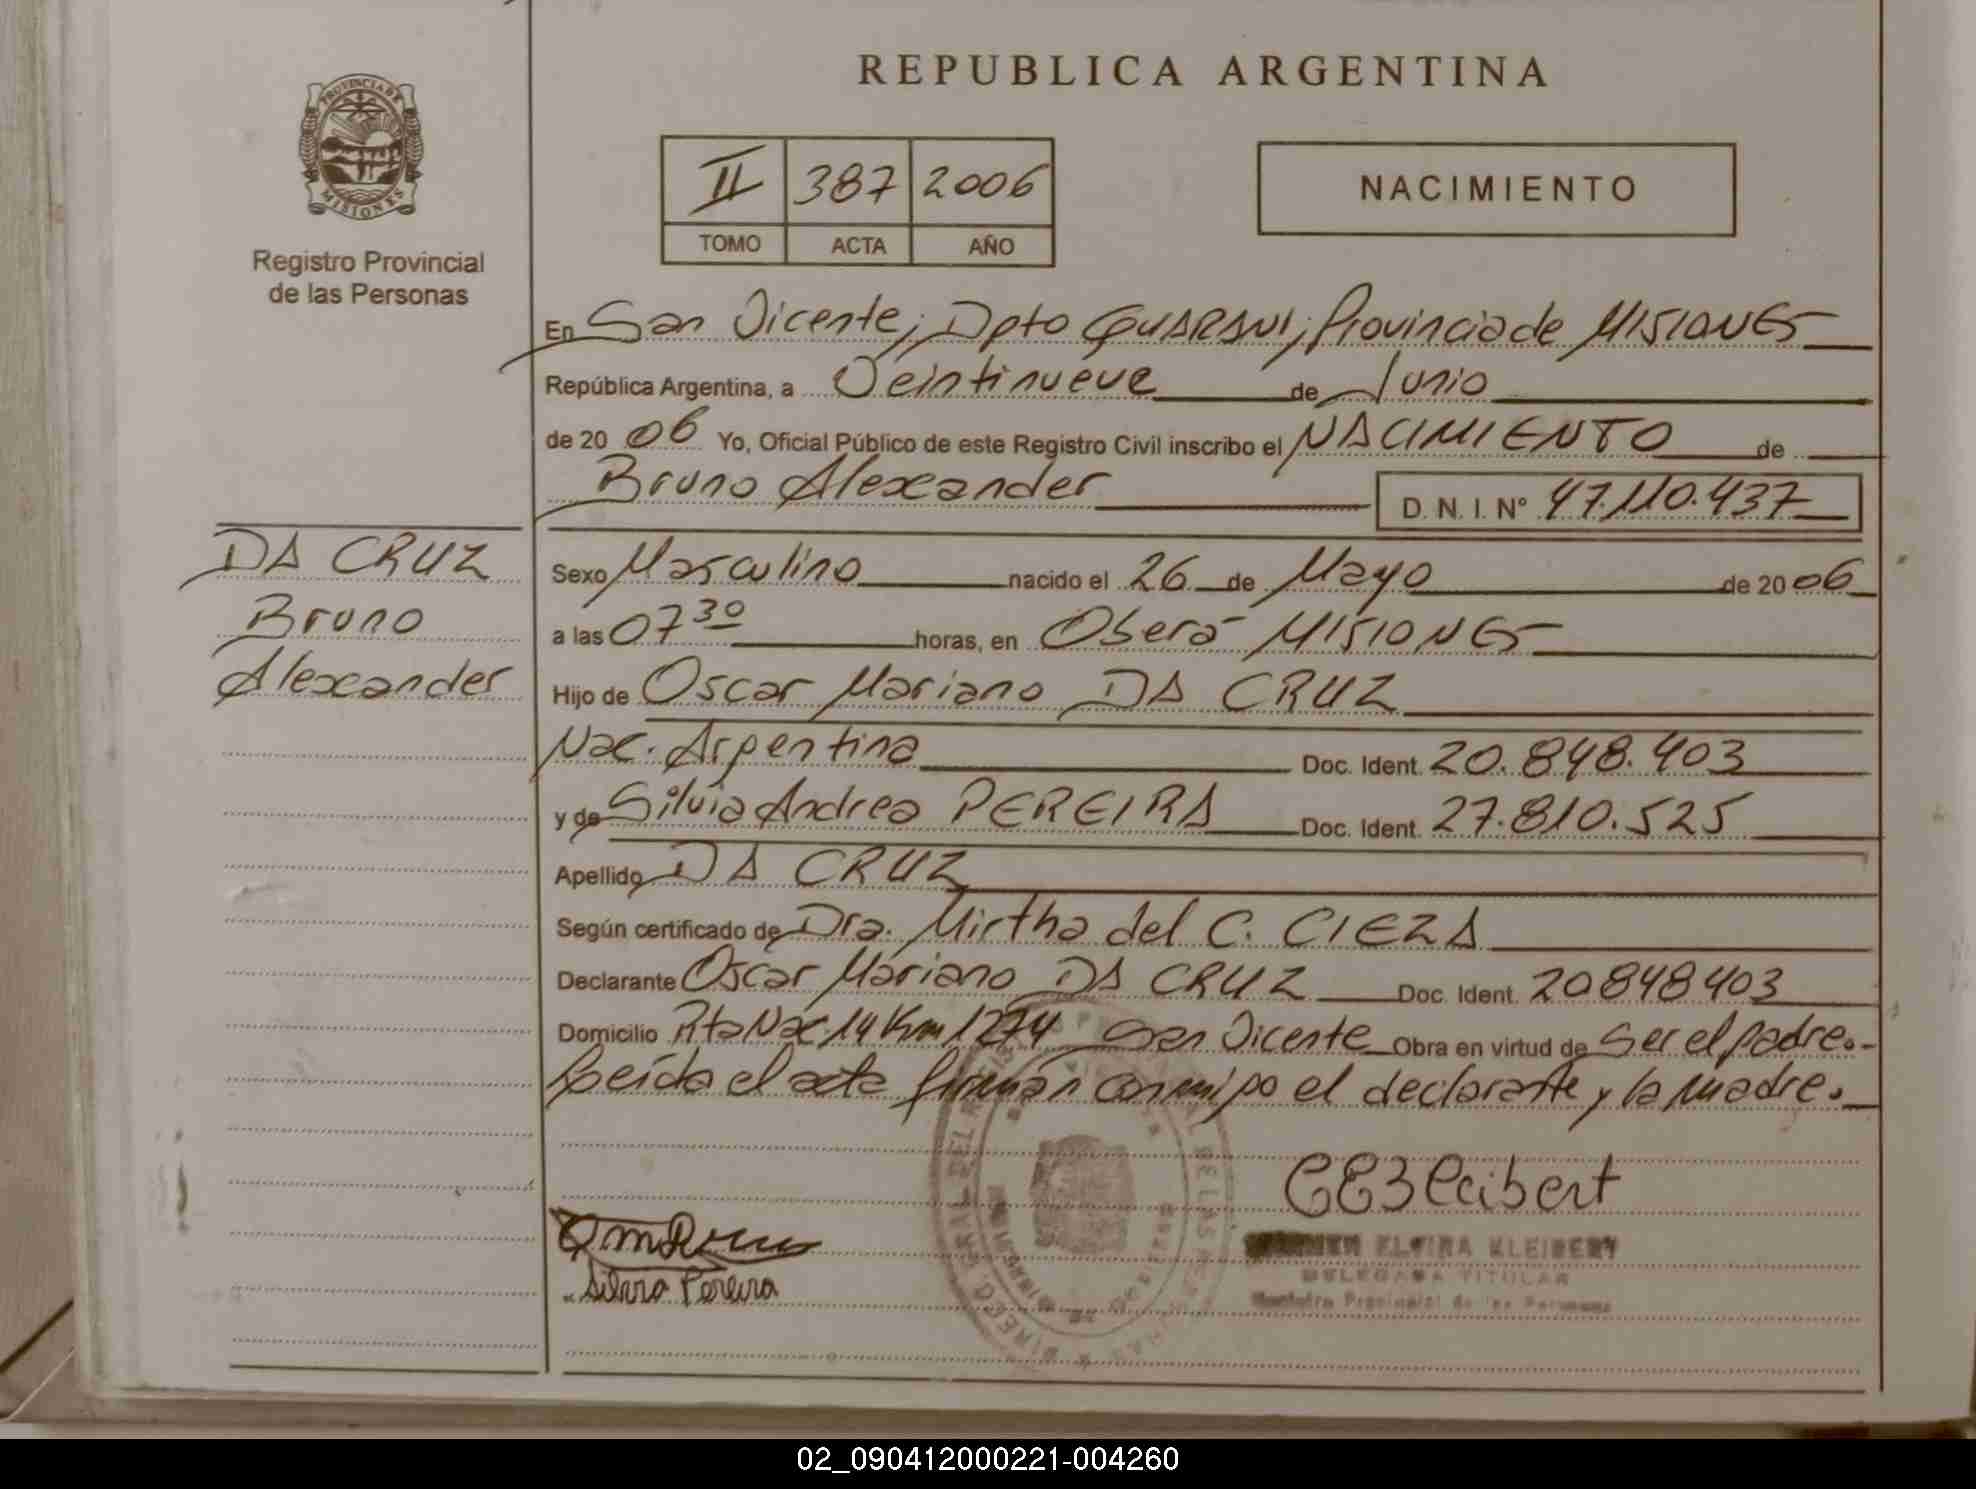 REPUBLICA ARGENTINA
PROVINCIA DE
MISIONES
Registro Provincial
de las Personas
II 387 2006
TOMO ACTA AÑO
NACIMIENTO
En San Vicente, Dpto GUARANI, Provincia de MISIONES
República Argentina, a Veintinueve de Junio
de 20 06 Yo, Oficial Público de este Registro Civil inscribo el NACIMIENTO de
Bruno Alexander D. N. I. Nº 47.110.437
DA CRUZ
Bruno
Alexander
Sexo Masculino nacido el 26 de Mayo de 20 06
a las 07 30 horas, en Oberá MISIONES
Hijo de Oscar Mariano DA CRUZ
Nac. Argentina Doc. Ident. 20.848.403
y de Silvia Andrea PEREIRA Doc. Ident. 27.810.525
Apellido DA CRUZ
Según certificado de Dra. Mirtha del C. CIEZA
Declarante Oscar Mariano DA CRUZ Doc. Ident. 20848403
Domicilio Rta Nac. 14 Km 1274 San Vicente Obra en virtud de Ser el padre.-
Leída el acta firman conmigo el declarante y la madre.
Silvia Pereira
ELVIRA KLEIBERT
DELEGADA TITULAR
Registro Provincial de las Personas
02_090412000221-004260